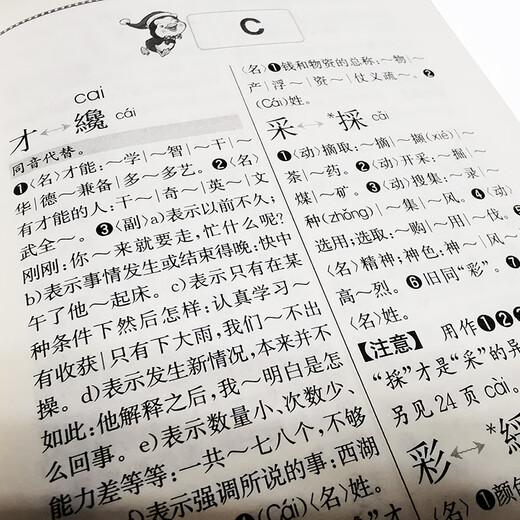 C
cai
才↔纔 cái
同音代替。
❶〈名〉才能:~学|~智|~干|~
华|德~兼备|多~多艺。❷〈名〉
有才能的人:干~|奇~|英~|文
武全~。❸〈副〉a)表示以前不久;
刚刚:你~来就要走,忙什么呢?
b)表示事情发生或结束得晚:快中
午了他~起床。c)表示只有在某
种条件下然后怎样:认真学习~
有收获|只有下大雨,我们~不出
操。d)表示发生新情况,本来并不
如此:他解释之后,我~明白是怎
么回事。e)表示数量小、次数少、
能力差等等:一共~七八个,不够
表示强调所说的事:西湖
(Cái)〈名〉姓。
〈名〉❶钱和物资的总称:~物|~
产|浮~|资~|仗义疏~。❷
(Cái)姓。
采↔*採 cǎi
❶〈动〉摘取:摘|~撷(xié)|~
茶|~药。❷〈动〉开采:~掘|~
煤|~矿。❸〈动〉搜集:~录|~
种(zhǒng)|~集|~风。❹〈动〉
选用;选取:~购|~用|~伐。❺
〈名〉精神;神色:神~|风~|
高~烈。❻旧同“彩”。❼
〈名〉姓。
【注意】 用作❶❷
“採”才是“采”的异
另见24页 cài。
彩↔*綵
〈名〉❶颜色